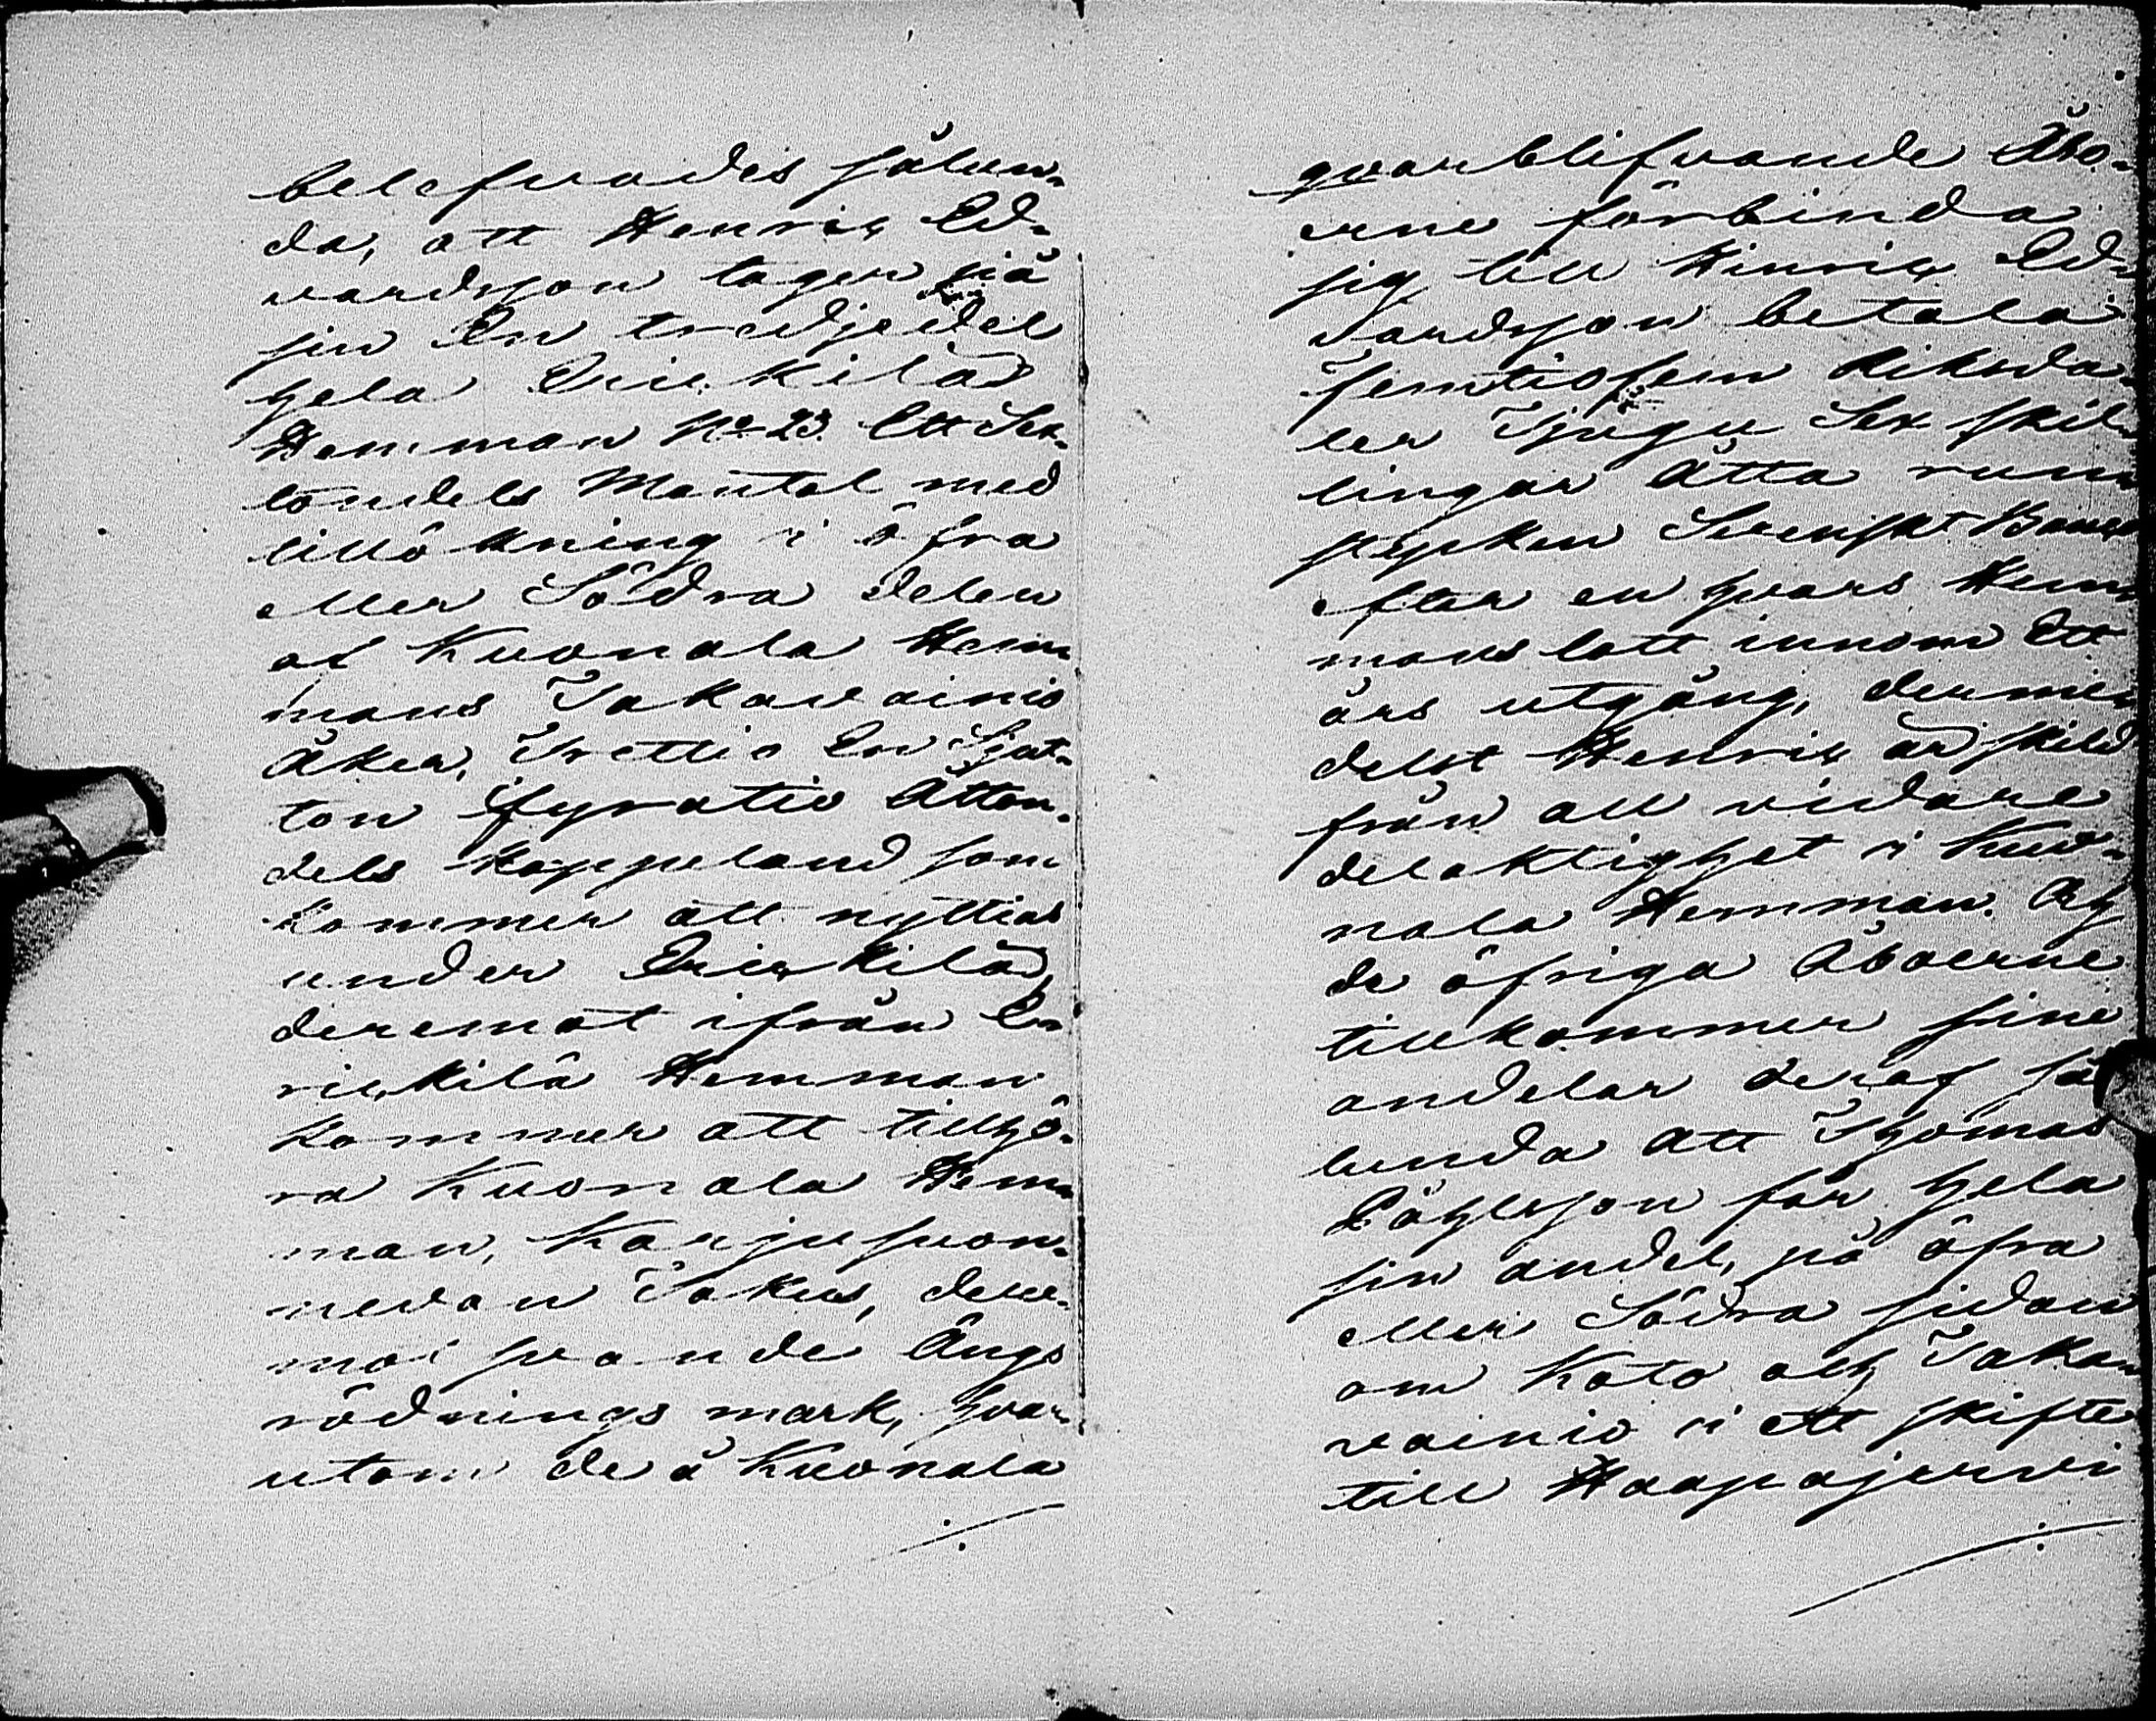 belefvades sålun-
da, att Henric Ed-
vardsson tager på
sin En tredjedel
hela Erickilä
Hemman No 23. Ett Sex-
tondels Mantal med
tillökning i öfra
eller Södra delen
af Kuonala Hem-
mans Takavainio
Åker, Trettio En Sjut-
ton fyratio Åtton-
dels kappeland som
kommer att nyttias
under Erickilä,
deremot ifrån Er-
rickilä Hemman
kommer att tillhö-
ra Kuonala Hem-
man, Karjusuon-
nevan Takus, den-
rödnings mark, hvar-
utom de å Kuonala
qvarblifvande Åbo-
erne förbinda
sig till Hinric Ed-
vardsson betala
femtiofem Riksda-
ler Tjugu Sex skil-
lingar Åtta run-
stycken Svenskt Banco
efter en hvars Hem-
mans lott innom Ett
års utgång, derme-
delst Henric är skild
från all vidare
delaktighet i Kuo-
nala Hemman. Och
de öfriga Åboerne
tillkommer sine
andelar deraf så-
lunda att Thomas
Påhlsson får hela
sin andel, på öfra
eller Södra sidan
om Koto och Taka-
vainio i ett skifte
till Haapajerwi